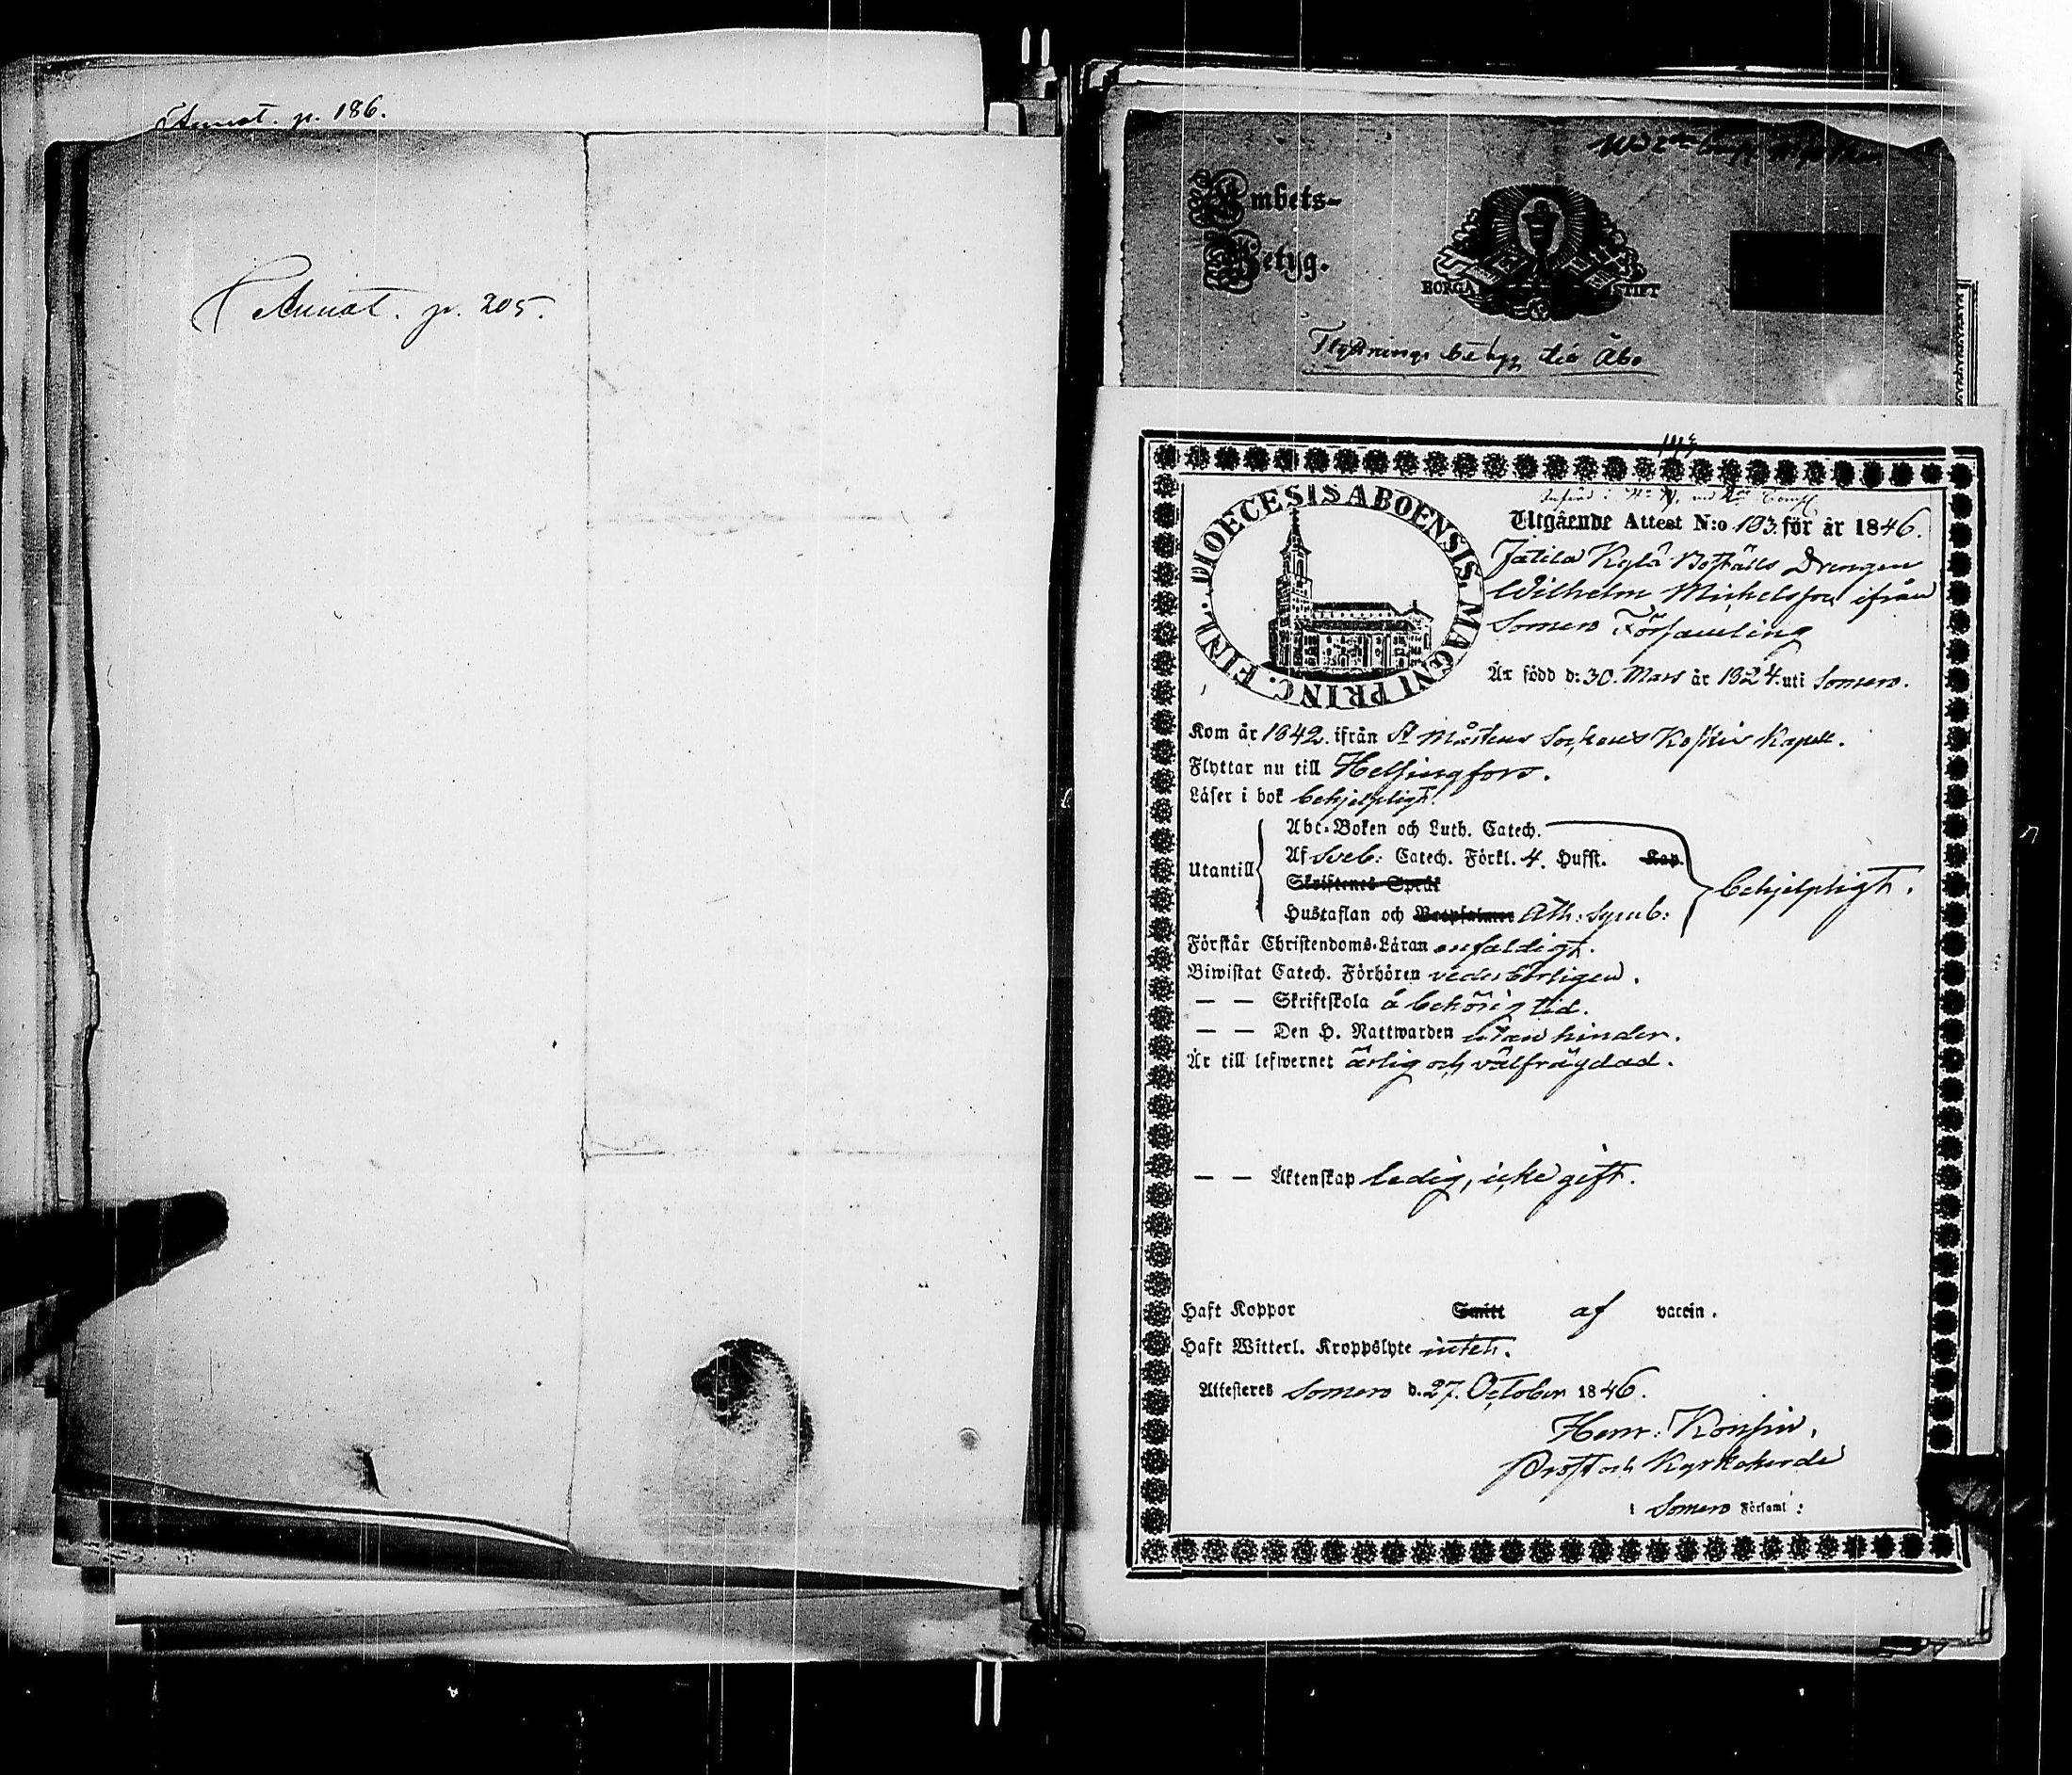 Annot. p. 186.
Annot. p. 205.
Embets-
Betyg.
BORGÅ STIFT
Flyttnings betyg til Åbo
DIOECESIS ABOENSIS. MAGNI PRINC. FINL.
Utgående Attest N:o 193 för år 1846.
Jatila Kylä Boställs Drengen
Wilhelm Michelsson ifrån
Somero Församling
Är född d: 30. Mars år 1824. uti Somero.
Kom år 1842. ifrån St Mårtens Sockens Koskis Kapell.
Flyttar nu till Helsingfors.
Läser i bok behjelpligt.
Utantill
Abc-Boken och Luth. Catech.
Af Sveb: Catech. Förkl. 4. Hufst. Kap
Skriftenes Språk
Hustaflan och Botpsalmer Ath: Symb:
behjelpligt.
Förstår Christendoms-Läran enfaldigt.
Biwistat Catech. Förhören vederbörligen.
— — Skriftskola å behörig tid.
— — Den H. Nattwarden utan hinder.
Är till lefwernet ärlig och välfrägdad.
— — Äktenskap ledig, icke gift.
Haft Koppor Smitt af vaccin.
Haft Witterl. Kroppslyte intet.
Attesteres Somero d. 27. October 1846.
Henr: Konsin,
Prost och Kyrkoherde
i Somero Församl: